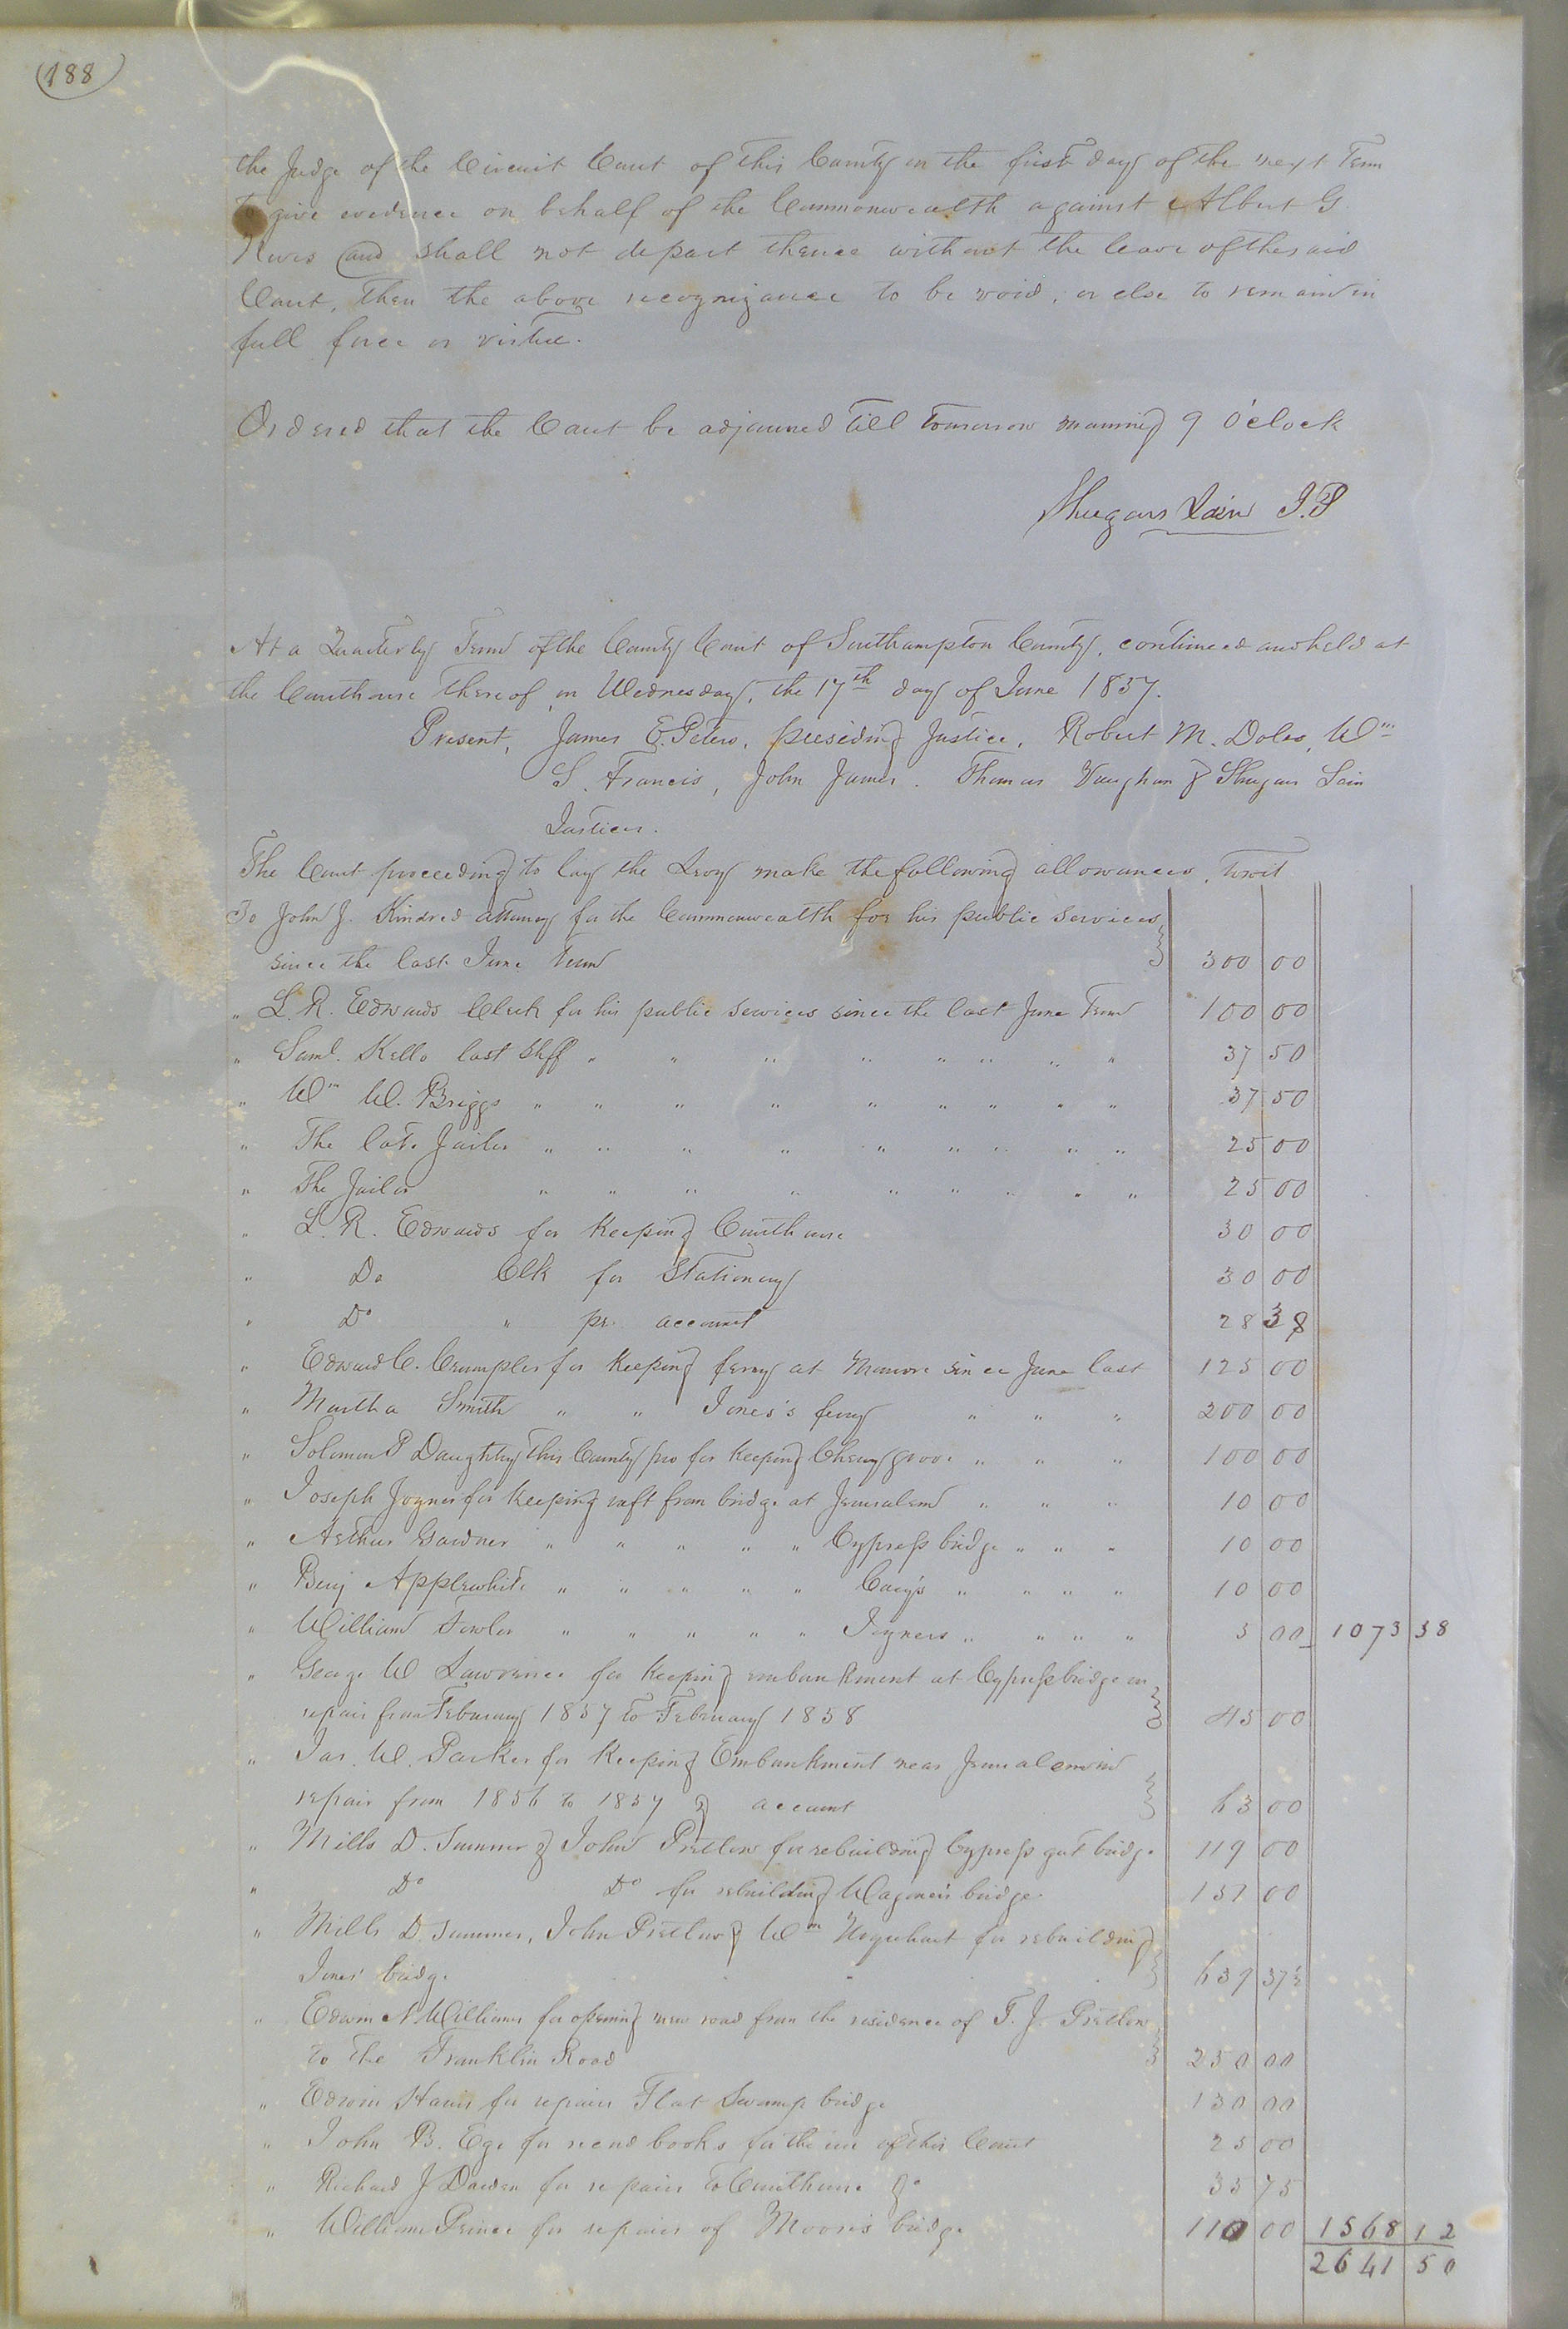 (188)
the Judge of the Circuit Court of this County on the first day of the next Term
to give evidence on behalf of the Commonwealth against Albert G
and shall not depart thence without the leave of the said
Court, then the above recognizance to be void, or else to remain in
full force or virtue.
Ordered that the Court be adjourned till tomorrow morning 9 O'clock
Shugars Lain J.P
At a Quarterly Term of the County Court of Southampton County, continued and held at
the Courthouse thereof, on Wednesday, the 17th day of June 1857.
Present, James E. Peters, presiding Justice, Robert M. Doles, Wm
S. Francis, John James. Thomas Vaughan & Shugars Lain
Justices.
The Court proceeding to lay the Levy make the following allowances, Towit
To John J. Kindred attorney for the Commonwealth for his public services
since the last June Term 300 00
" L. R. Edwards Clerk for his public services since the last June Term 100 00
" Saml. Kello last Shff " " " " " " " " 37 50
" Wm W. Briggs " " " " " " " " " 37 50
" The late Jailer " " " " " " " " " 25 00
" The Jailor " " " " " " " " " 25 00
" L. R. Edwards for Keeping Courthouse 30 00
" Do Clk for Stationery 30 00
" Do " per account 28 38
" Edward C. Crumpler for Keeping ferry at Monroe since June last 125 00
" Martha Smith " " Jones's ferry " " " 200 00
" Solomon P Daughtry this County pro for Keeping Cherry grove " " " 100 00
" Joseph Joyner for Keeping raft from bridge at Jerusalem " " " 10 00
" Arthur Gardner " " " " " Cypress bridge " " " 10 00
" Benj Applewhite " " " " " Cary's " " " " 10 00
" William Fowler " " " " " Joyners " " " " 5 00 1073 38
" George W Lawrence for Keeping embankment at Cypress bridge in
repair from February 1857 to February 1858 45 00
" Jas. W. Parker for Keeping Embankment near Jerusalem in
repair from 1856 to 1857 & account 63 00
" Mills D. Sumner & John Pretlow for rebuilding Cypress gut bridge 119 00
" Do Do for rebuilding Wagoner's bridge 157 00
" Mills D. Sumner, John Pretlow & Wm Urquhart for rebuilding
Jones' bridge 639 37½
" Edwin N Williams for opening new road from the residence of T. J. Pretlow
to the Franklin Road 250 00
" Edwin Harris for repairs Flat Swamp bridge 130 00
" John B. Ege for record books for the use of this Court 25 00
" Richard J Darden for repairs to Courthouse &c 35 75
" William Prince for repairs of Moore's bridge 110 00 1568 12
2641 50